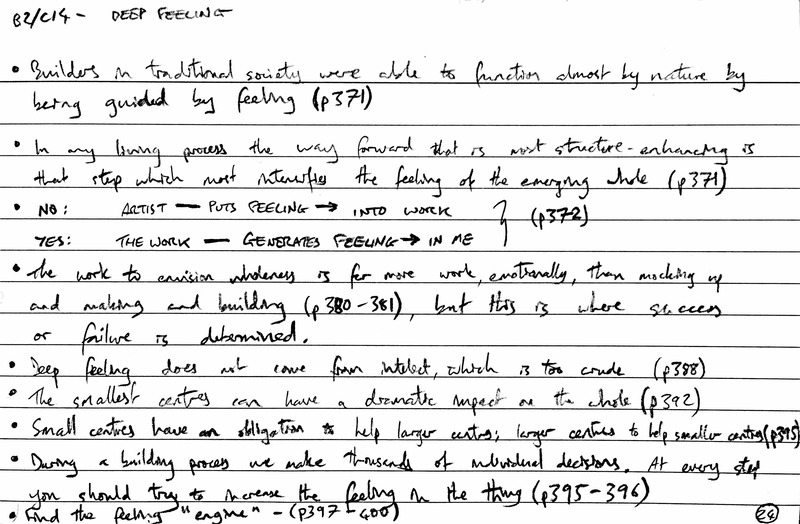 B2/C14 - DEEP FEELING
• Builders in traditional society were able to function almost by nature by
being guided by feeling (p371)
• In any living process the way forward that is most structure-enhancing is
that step which most intensifies the feeling of the emerging whole (p371)
• NO: ARTIST — PUTS FEELING → INTO WORK } (p372)
YES: THE WORK — GENERATES FEELING → IN ME
• The work to envision wholeness is far more work, emotionally, than mocking up
and making and building (p380-381), but this is where success
or failure is determined.
• Deep feeling does not come from intelect, which is too crude (p388)
• The smallest centres can have a dramatic impact on the whole (p392)
• Small centres have an obligation to help larger centres; larger centres to help smaller centres (p395)
• During a building process we make thousands of individual decisions. At every step
you should try to increase the feeling in the thing (p395-396)
• Find the feeling "engine" - (p397-400)
24